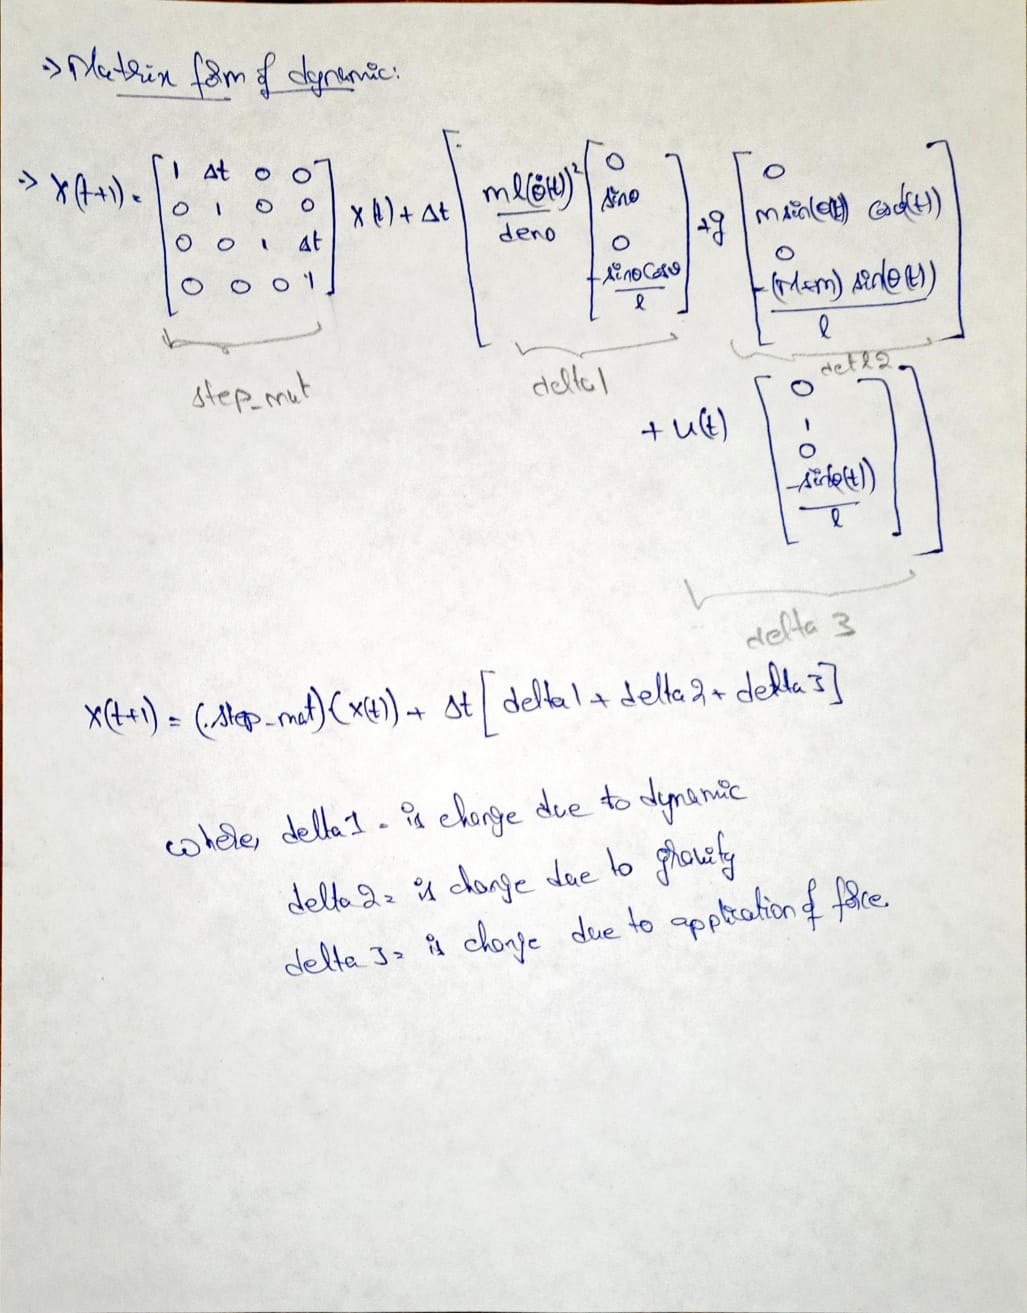 → Matrix form of dynamic:
→ X(t+1) = [1 Δt 0 0; 0 1 0 0; 0 0 1 Δt; 0 0 0 1] x(t) + Δt [ ml(θ̇(t))² / deno [0; sinθ; 0; -sinθcosθ / l] + g [0; m sin(θ(t)) cos(θ(t)); 0; -(M+m) sin(θ(t)) / l]
step_mat delta1 delta2
+ u(t) [0; 1; 0; -sin(θ(t)) / l] ]
delta 3
X(t+1) = (step_mat)(x(t)) + Δt [delta1 + delta2 + delta3]
where, delta1 = is change due to dynamic
delta 2 = is change due to gravity
delta 3 = is change due to application of force.